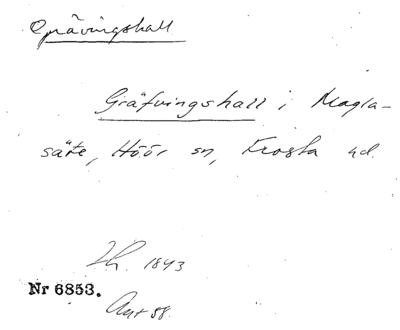 Grävingshall
Gräfvingshall i Magla-
säte, Höör sn, Frosta hd.
1843
Nr 6853.